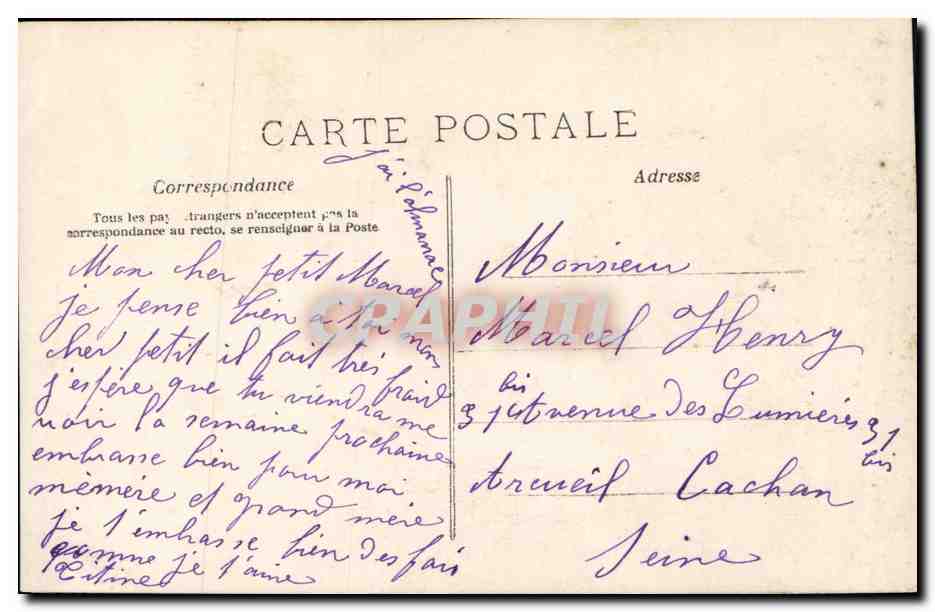 CARTE POSTALE
Correspondance
Tous les pay  trangers n'acceptent pas la
correspondance au recto, se renseigner à la Poste
j'ai l'almanac
Mon cher petit Marcel
je pense bien à toi mon
cher petit il fait très froid
j'espère que tu viendra me
voir la semaine prochaine
embrasse bien pour moi
mémère et grand mère
je t'embrasse bien des fois
comme je t'aime
Titine
Adresse
Monsieur
Marcel Henry
bis
31 Avenue des Lumières 31
bis
Arcueil Cachan
Seine
CRAPHIL